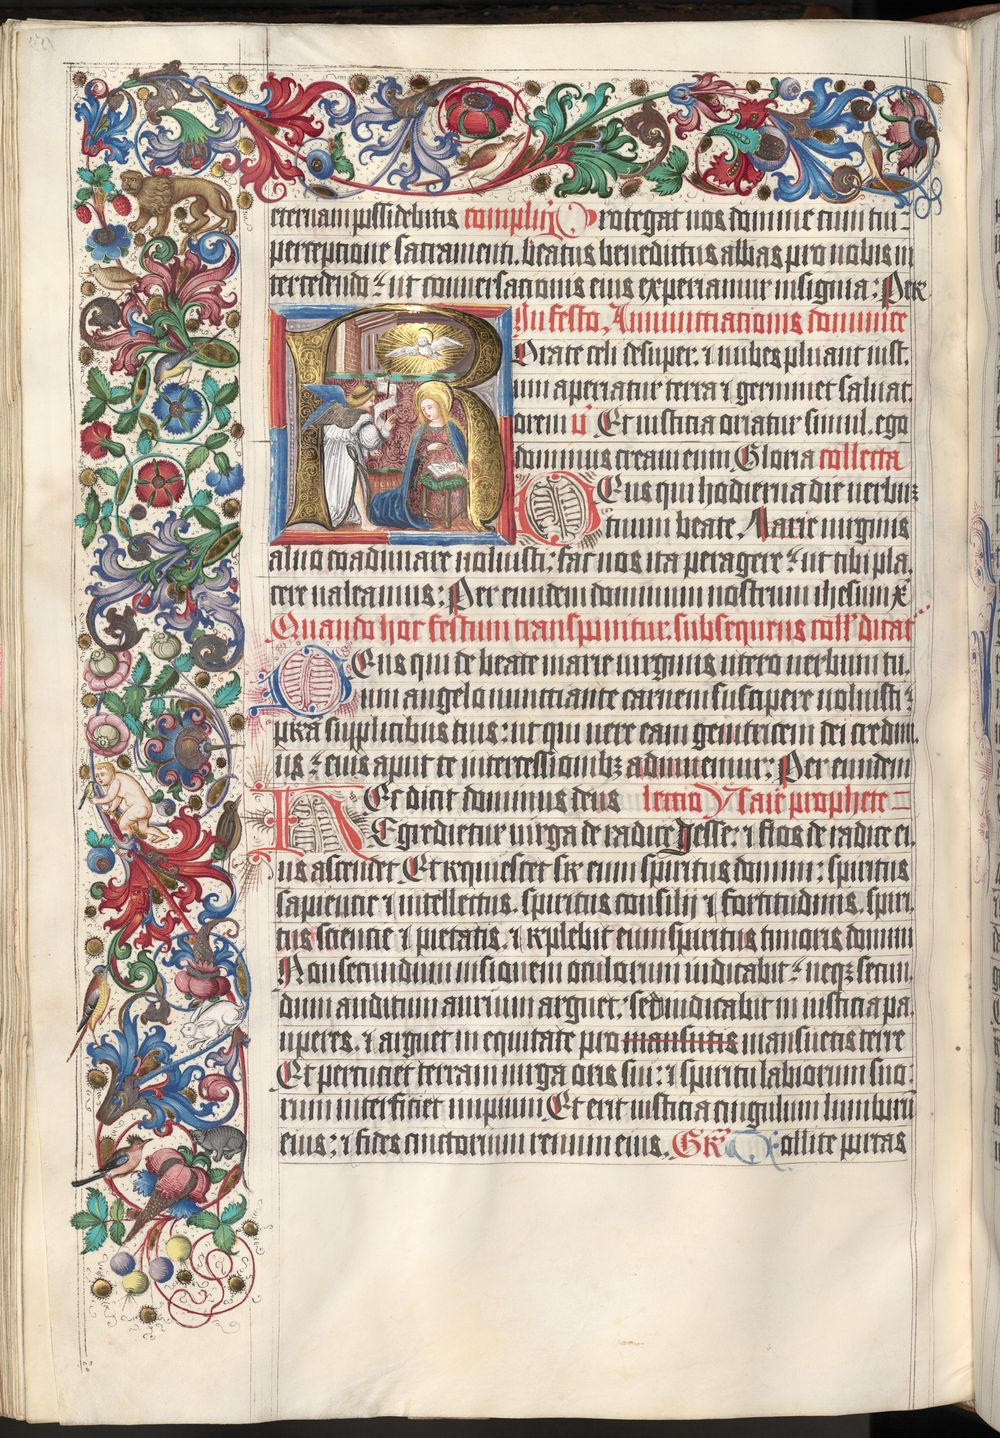 eternam possidebitis complen̄ Protegat nos domine cum tui
perceptione sacramenti. beatus benedictus abbas pro nobis in
tercedendo ut conversationis eius experiamur insignia: Per
In festo Annunctiationis dominice
Rorate celi desuper. ⁊ nubes pluant iust.
um aperiatur terra ⁊ germinet salvat
orem v̄ Et iusticia oriatur simul. ego
dominus creavi eum Gloria collecta
Deus qui hodierna die verbū
tuum beate Marie virginis
alvo coadunare voluisti: fac nos ita peragere ut tibi pla.
cere valeamus: Per eundem dominum nostrum ihesum x
Quando hoc festum transponitur. subsequens coll' dicat
Deus qui de beate marie virginis utero verbum tu.
um angelo nunctiante carnem suscipere voluisti:
pr̄a supplicibus tuis: ut qui vere eam genitricem dei credim.
us: eius aput te intercessionibꝫ adiuvemur: Per eundem
Hec dicit dominus deus lectio Ysaie prophete
Egredietur virga de radice Jesse: ⁊ flos de radice ei
us ascendet Et requiescet sr̄ eum spiritus domini: spiritus
sapientie ⁊ intellectus. spiritus consilii ⁊ fortitudinis. spiri.
tus scientie ⁊ pietatis. ⁊ replebit eum spiritus timoris domini
Non secundum visionem oculorum iudicabit: neqꝫ secun.
dum auditum aurium arguet: sed iudicabit in iusticia pa
uperes. ⁊ arguet in equitate pro mansutis mansuetis terre
Et percuciet terram virga oris sui: ⁊ spiritu labiorum suo:
rum interficiet impium Et erit iusticia cingulum lumborū
eius: ⁊ fides cinctorium renum eius. Gr̄ Tollite portas